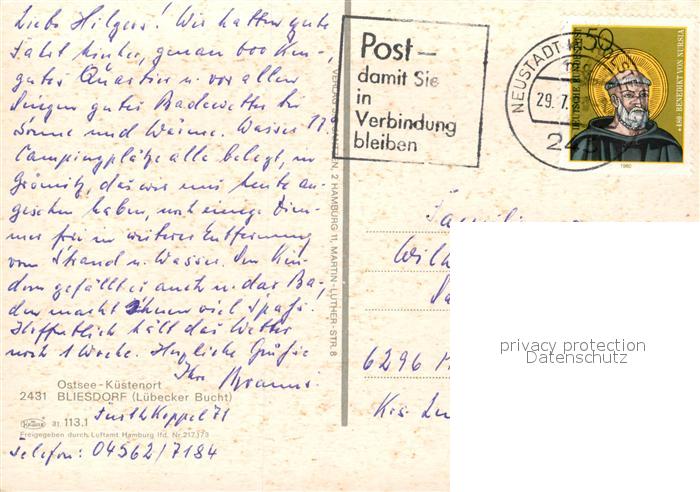 Liebe Hilgers! Wir hatten gute
Fahrt hierher, genau 600 Km.,
gutes Quartier u. vor allen
Dingen gutes Badewetter bei
Sonne und Wärme. Wasser 17°.
Campingplätze alle belegt, in
Grömitz, das wir uns heute an-
gesehen haben, noch einige Zim-
mer frei in weiterer Entfernung
vom Strand u. Wasser. Den Kin-
dern gefällt es auch u. das Ba-
den macht Ihnen viel Spaß.
Hoffentlich hält das Wetter
noch 1 Woche. Herzliche Grüße
Ihre
Ostsee-Küstenort
2431 BLIESDORF (Lübecker Bucht)
Koppel 71
KRÜGER 31 113.1
Freigegeben durch Luftamt Hamburg lfd. Nr. 217/73
Telefon: 04562/7184
2 HAMBURG 11, MARTIN-LUTHER-STR. 8
Post–
damit Sie
in
Verbindung
bleiben
NEUSTADT
29.7.
243
50
DEUTSCHE BUNDESPOST
*480 · BENEDIKT VON NURSIA
1980
Familie
Wilh
6296
Krs.
privacy protection
Datenschutz